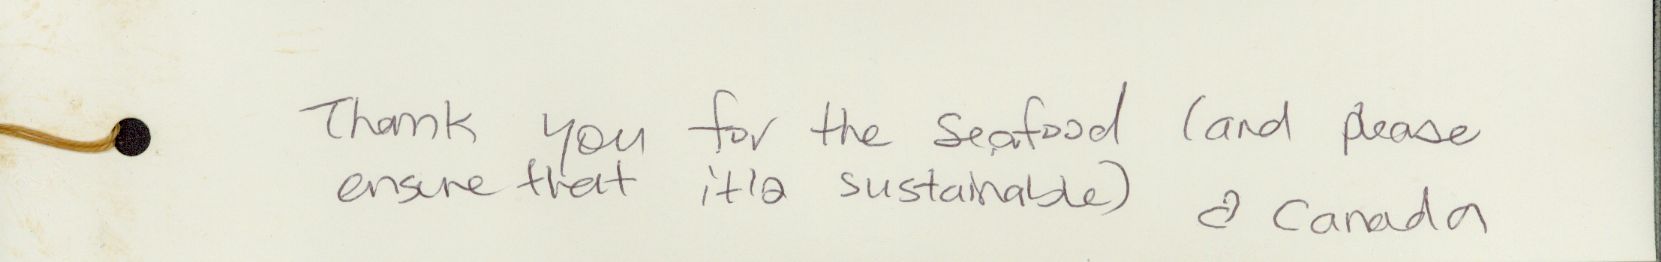 Thank you for the seafood (and please
ensure that it's sustainable)
Canada